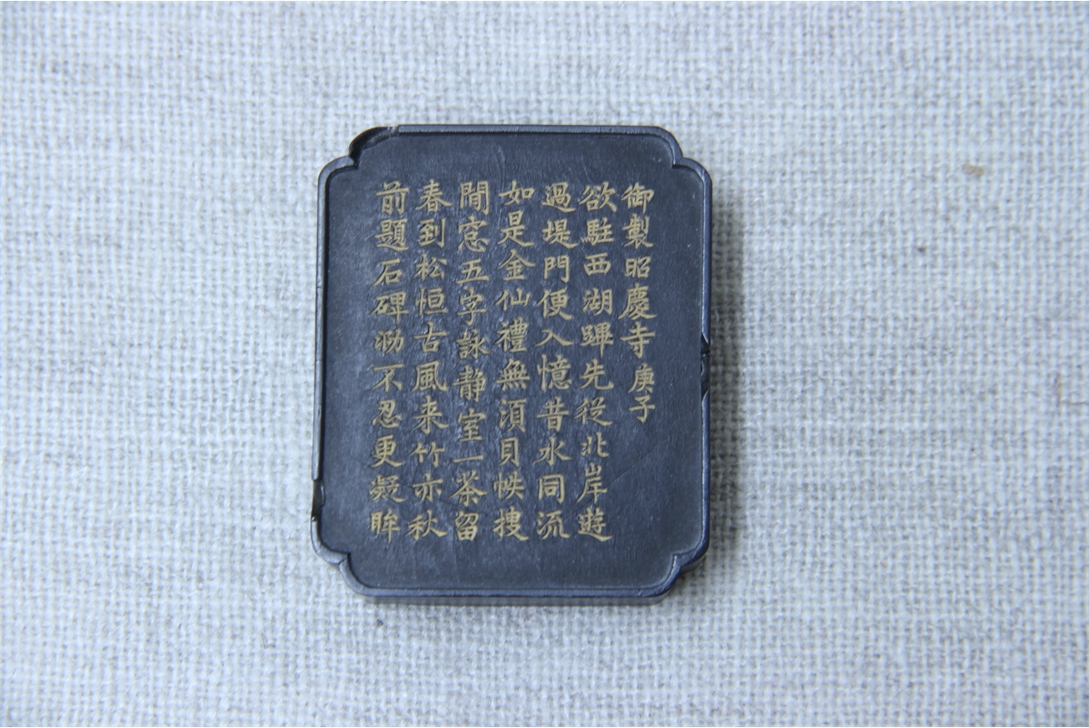 御製昭慶寺庚子
欲駐西湖蹕先從北岸遊
過堤門便入憶昔水同流
如是金仙禮無須貝帙捜
閒窓五字詠静室一茶留
春到松恒古風来竹亦秋
前題石碑泐不忍更凝眸